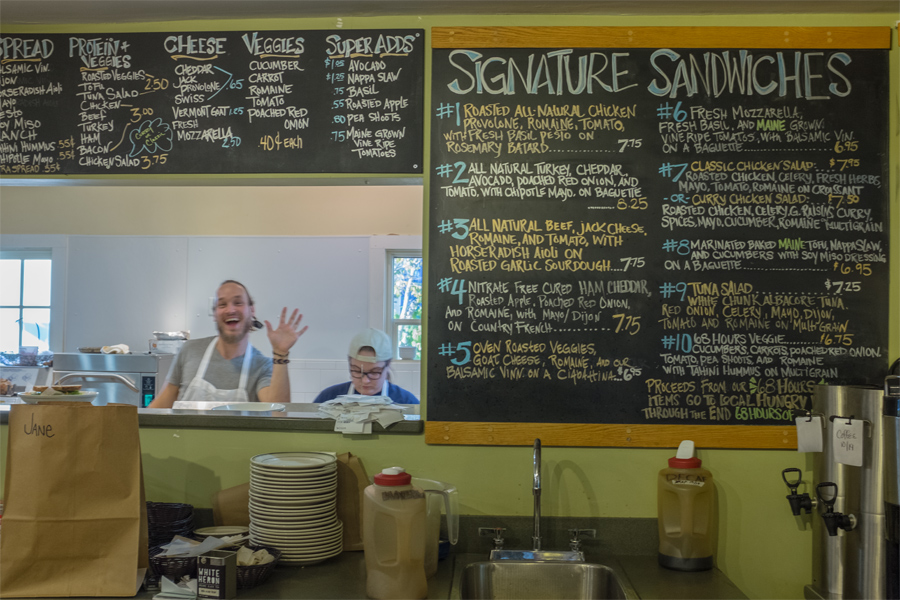 SPREAD
BALSAMIC VIN.
MAYO
RANCH
TAHINI HUMMUS 55¢
CHIPOTLE MAYO 55¢
EXTRA SPREAD .55¢
PROTEIN + VEGGIES
ROASTED VEGGIES
TOFU 2.50
TUNA SALAD
CHICKEN
BEEF 3.00
TURKEY
HAM
BACON
CHICKEN SALAD 3.75
CHEESE
CHEDDAR
JACK
PROVOLONE .65
SWISS
VERMONT GOAT 1.05
FRESH
MOZZARELLA 2.50
VEGGIES
CUCUMBER
CARROT
ROMAINE
TOMATO
POACHED RED
ONION
40¢ EACH
SUPER ADDS
$1.05 AVOCADO
$1.25 NAPPA SLAW
.75 BASIL
.55 ROASTED APPLE
.60 PEA SHOOTS
.75 MAINE GROWN
VINE RIPE
TOMATOES
SIGNATURE SANDWICHES
#1 ROASTED ALL-NATURAL CHICKEN
PROVOLONE, ROMAINE, TOMATO,
WITH FRESH BASIL PESTO ON
ROSEMARY BATARD 7.75
#2 ALL NATURAL TURKEY, CHEDDAR,
AVOCADO, POACHED RED ONION, AND
TOMATO, WITH CHIPOTLE MAYO. ON BAGUETTE
8.25
#3 ALL NATURAL BEEF, JACK CHEESE,
ROMAINE, AND TOMATO, WITH
HORSERADISH AIOLI ON
ROASTED GARLIC SOURDOUGH 7.75
#4 NITRATE FREE CURED HAM CHEDDAR,
ROASTED APPLE, POACHED RED ONION,
AND ROMAINE, WITH MAYO/DIJON
ON COUNTRY FRENCH 7.75
#5 OVEN ROASTED VEGGIES,
GOAT CHEESE, ROMAINE, AND OUR
BALSAMIC VINN. ON A CIABATTINA $6.95
#6 FRESH MOZZARELLA,
FRESH BASIL, AND MAINE GROWN
VINE RIPE TOMATOES, WITH BALSAMIC VIN.
ON A BAGUETTE 6.95
#7 CLASSIC CHICKEN SALAD: $7.95
ROASTED CHICKEN, CELERY, FRESH HERBS,
MAYO, TOMATO, ROMAINE ON CROISSANT
-OR- CURRY CHICKEN SALAD: $7.50
ROASTED CHICKEN, CELERY, G. RAISINS, CURRY
SPICES, MAYO, CUCUMBER, ROMAINE MULTIGRAIN
#8 MARINATED BAKED MAINE TOFU, NAPPA SLAW,
AND CUCUMBERS WITH SOY MISO DRESSING
ON A BAGUETTE $6.95
#9 TUNA SALAD $7.25
WHITE CHUNK ALBACORE TUNA
RED ONION, CELERY, MAYO, DIJON,
TOMATO AND ROMAINE ON MULTIGRAIN
#10 68 HOURS VEGGIE $6.75
CUCUMBERS, CARROTS, POACHED RED ONION,
TOMATO, PEA SHOOTS, AND ROMAINE
WITH TAHINI HUMMUS ON MULTIGRAIN
PROCEEDS FROM OUR 68 HOURS
ITEMS GO TO LOCAL HUNGRY
THROUGH THE END 68 HOURS OF
JANE
WHITE
HERON
COFFEE